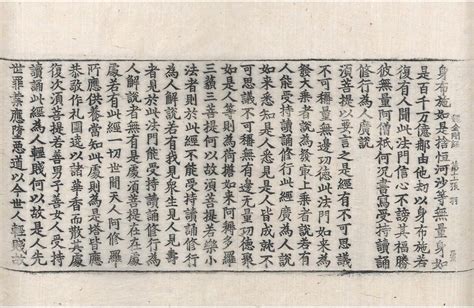 身布施如是捨恒河沙等無量身如
是百千万億那由他劫以身布施若
復有人聞此法門信心不謗其福勝
彼無量阿僧祇何況書寫受持讀誦
修行為人廣說
須菩提以要言之是經有不可思議
不可稱量無邊功德此法門如來為
發大乘者說為發最上乘者說若有
人能受持讀誦修行此經廣為人說
如來悉知是人悉見是人皆成就不
可思議不可稱無有邊無量功德聚
如是人等則為荷擔如來阿耨多羅
三藐三菩提何以故須菩提若樂小
法者則於此經不能受持讀誦修行
為人解說若有我見衆生見人見壽
者見於此法門能受持讀誦修行為
人解說者無有是處須菩提在在處
處若有此經一切世間天人阿修羅
所應供養當知此處則為是塔皆應
恭敬作禮圍遶以諸華香而散其處
復次須菩提若善男子善女人受持
讀誦此經為人輕賤何以故是人先
世罪業應墮惡道以今世人輕賤故